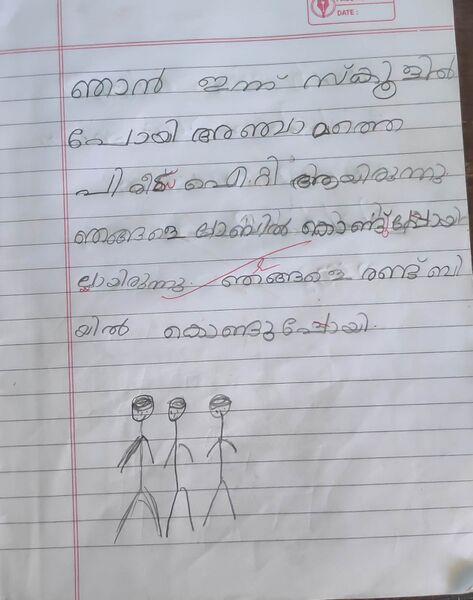 DATE :
ഞാൻ ഇന്ന് സ്കൂളിൽ
പോയി അഞ്ചാമത്തെ
പിരീഡ് ഐ.റ്റി ആയിരുന്നു.
ഞങ്ങളെ ലാബിൽ കൊണ്ട്പോയി
ലായിരുന്നു. ഞങ്ങളെ രണ്ട് ബി
യിൽ കൊണ്ടുപോയി.